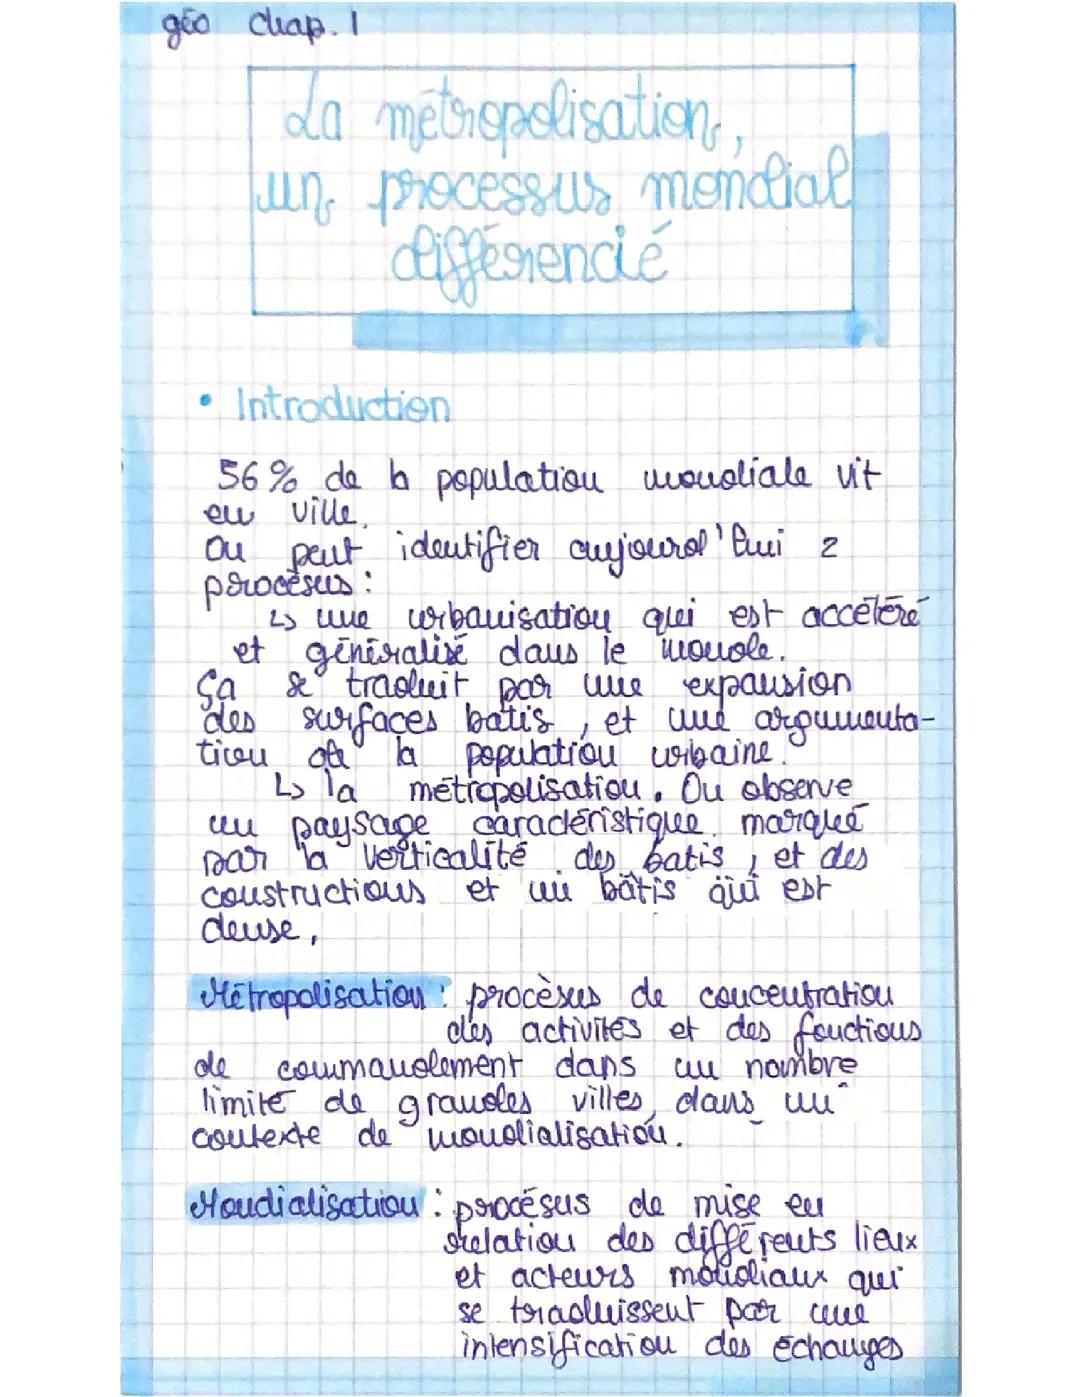 géo chap. 1
La métropolisation,
un processus mondial
différencié
• Introduction
56% de la population mondiale vit
en ville.
On peut identifier aujourd'hui 2
procésus :
↳ une urbanisation qui est accéléré
et généralisé dans le monde.
Ça se traduit par une expansion
des surfaces batis, et une argumenta-
tion de la population urbaine.
↳ la métropolisation. On observe
un paysage caractéristique marqué
par la verticalité des batis, et des
constructions et un bâtis qui est
dense,
Métropolisation : procèsus de concentration
des activités et des fonctions
de commandement dans un nombre
limité de grandes villes, dans un
contexte de mondialisation.
Mondialisation : procésus de mise en
relation des différents lieux
et acteurs mondiaux qui
se traduissent par une
intensification des échanges